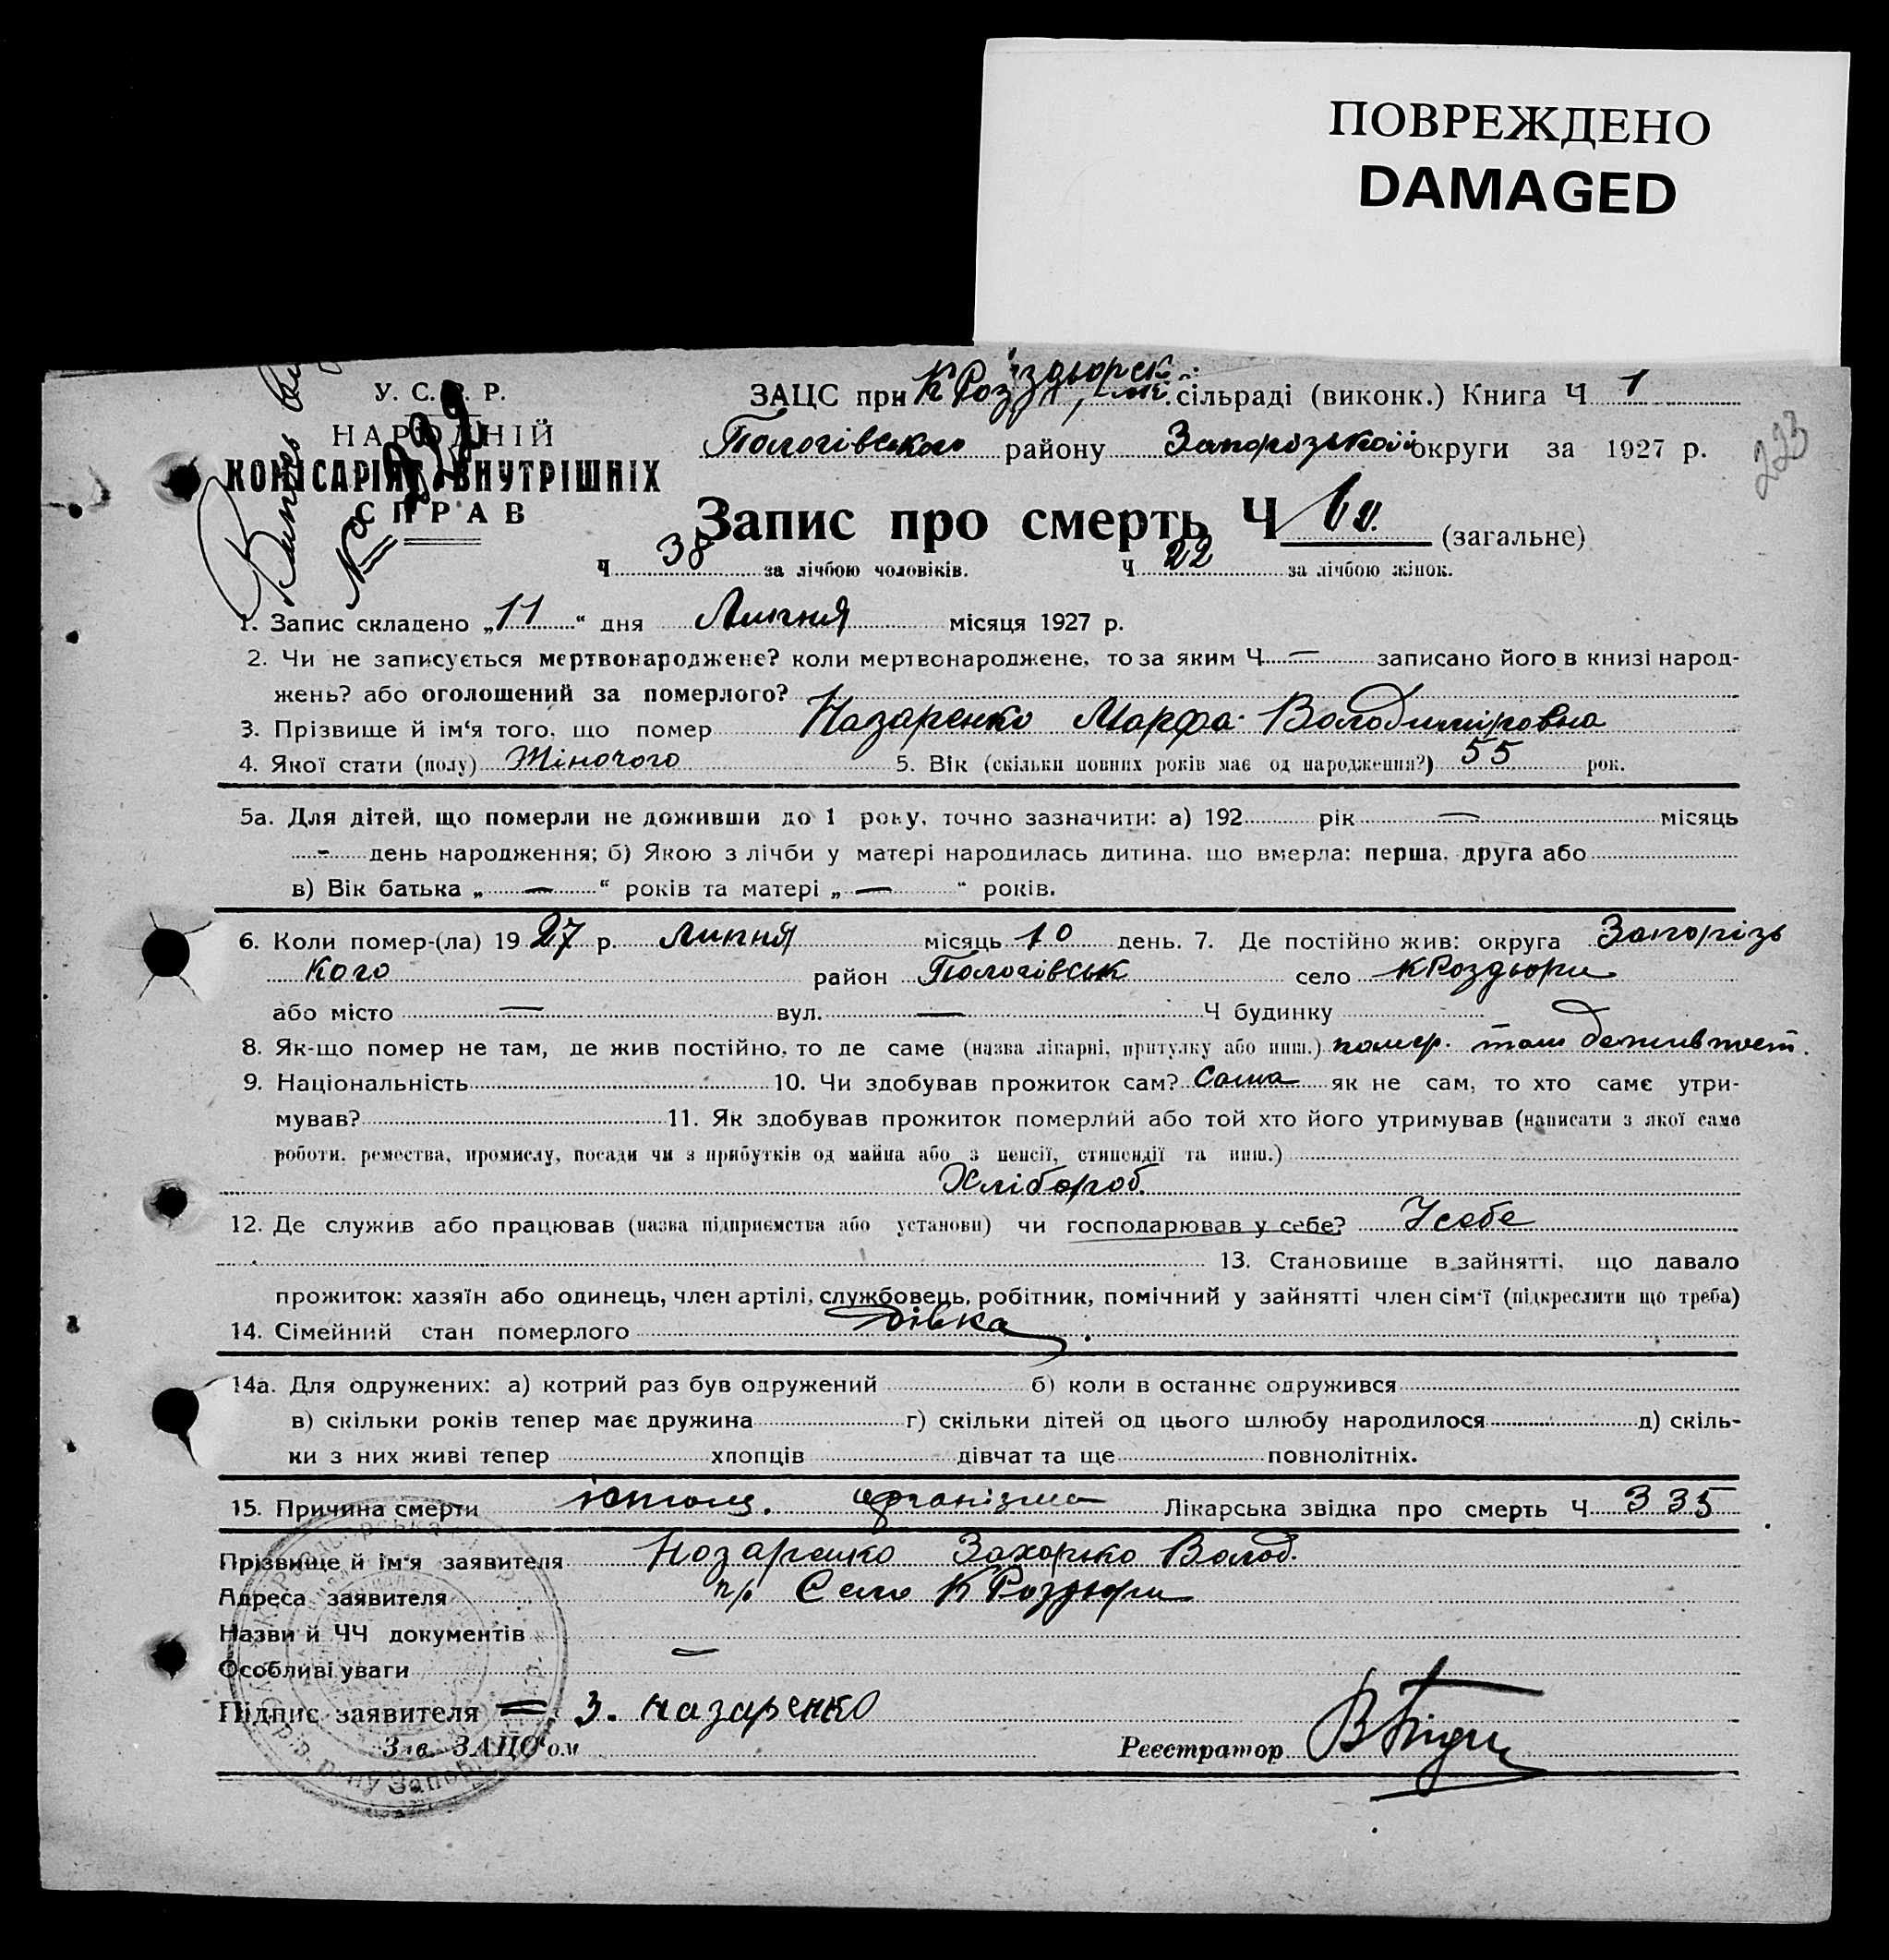 ПОВРЕЖДЕНО
DAMAGED
У. С. Р. Р.
НАРОДНІЙ
КОМІСАРІЯТ ВНУТРІШНІХ
СПРАВ
Випись
№ 392
ЗАЦС при К Роздорск. сільраді (виконк.) Книга Ч 1
Пологівского району Запорізькоі округи за 1927 р.
223
Запис про смерть Ч 60. (загальне)
Ч 38 за лічбою чоловіків. Ч 22 за лічбою жінок.
1. Запис складено „11“ дня Липня місяця 1927 р.
2. Чи не записується мертвонароджене? коли мертвонароджене, то за яким Ч — записано його в книзі народ-
жень? або оголошений за померлого?
3. Прізвище й ім‘я того, що помер Назаренко Марфа Володиміровна
4. Якої стати (полу) Жіночого 5. Вік (скільки повних років має од народження?) 55 рок.
5а. Для дітей, що померли не доживши до 1 року, точно зазначити: а) 192 рік — місяць
- день народження; б) Якою з лічби у матері народилась дитина, що вмерла: перша, друга або
в) Вік батька „ — “ років та матері „ — “ років.
6. Коли помер-(ла) 1927 р. Липня місяць 10 день. 7. Де постійно жив: округа Запорізь
кого район Пологівськ село К Роздори
або місто — вул. — Ч будинку
8. Як-що помер не там, де жив постійно, то де саме (назва лікарні, притулку або инш.) помер. там де жив
9. Національність 10. Чи здобував прожиток сам? Сама як не сам, то хто саме утри-
мував? 11. Як здобував прожиток померлий або той хто його утримував (написати з якої саме
роботи, ремества, промислу, посади чи з прибутків од майна або з пенсії, стипендії та инш.)
Хлібороб.
12. Де служив або працював (назва підприємства або установи) чи господарював у себе? У себе
13. Становище в зайнятті, що давало
прожиток: хазяїн або одинець, член артілі, службовець, робітник, помічний у зайнятті член сім‘ї (підкреслити що треба)
14. Сімейний стан померлого дівка
14а. Для одружених: а) котрий раз був одружений б) коли в останнє одружився
в) скільки років тепер має дружина г) скільки дітей од цього шлюбу народилося д) скіль-
ки з них живі тепер хлопців дівчат та ще повнолітніх.
15. Причина смерти організма Лікарська звідка про смерть Ч 335
Прізвище й ім‘я заявителя Назаренко Захарко Волод.
Адреса заявителя Село К Роздори
Назви й ЧЧ документів
Особливі уваги —
Підпис заявителя З. Назаренко
Зав. ЗАЦС‘ом Реєстратор